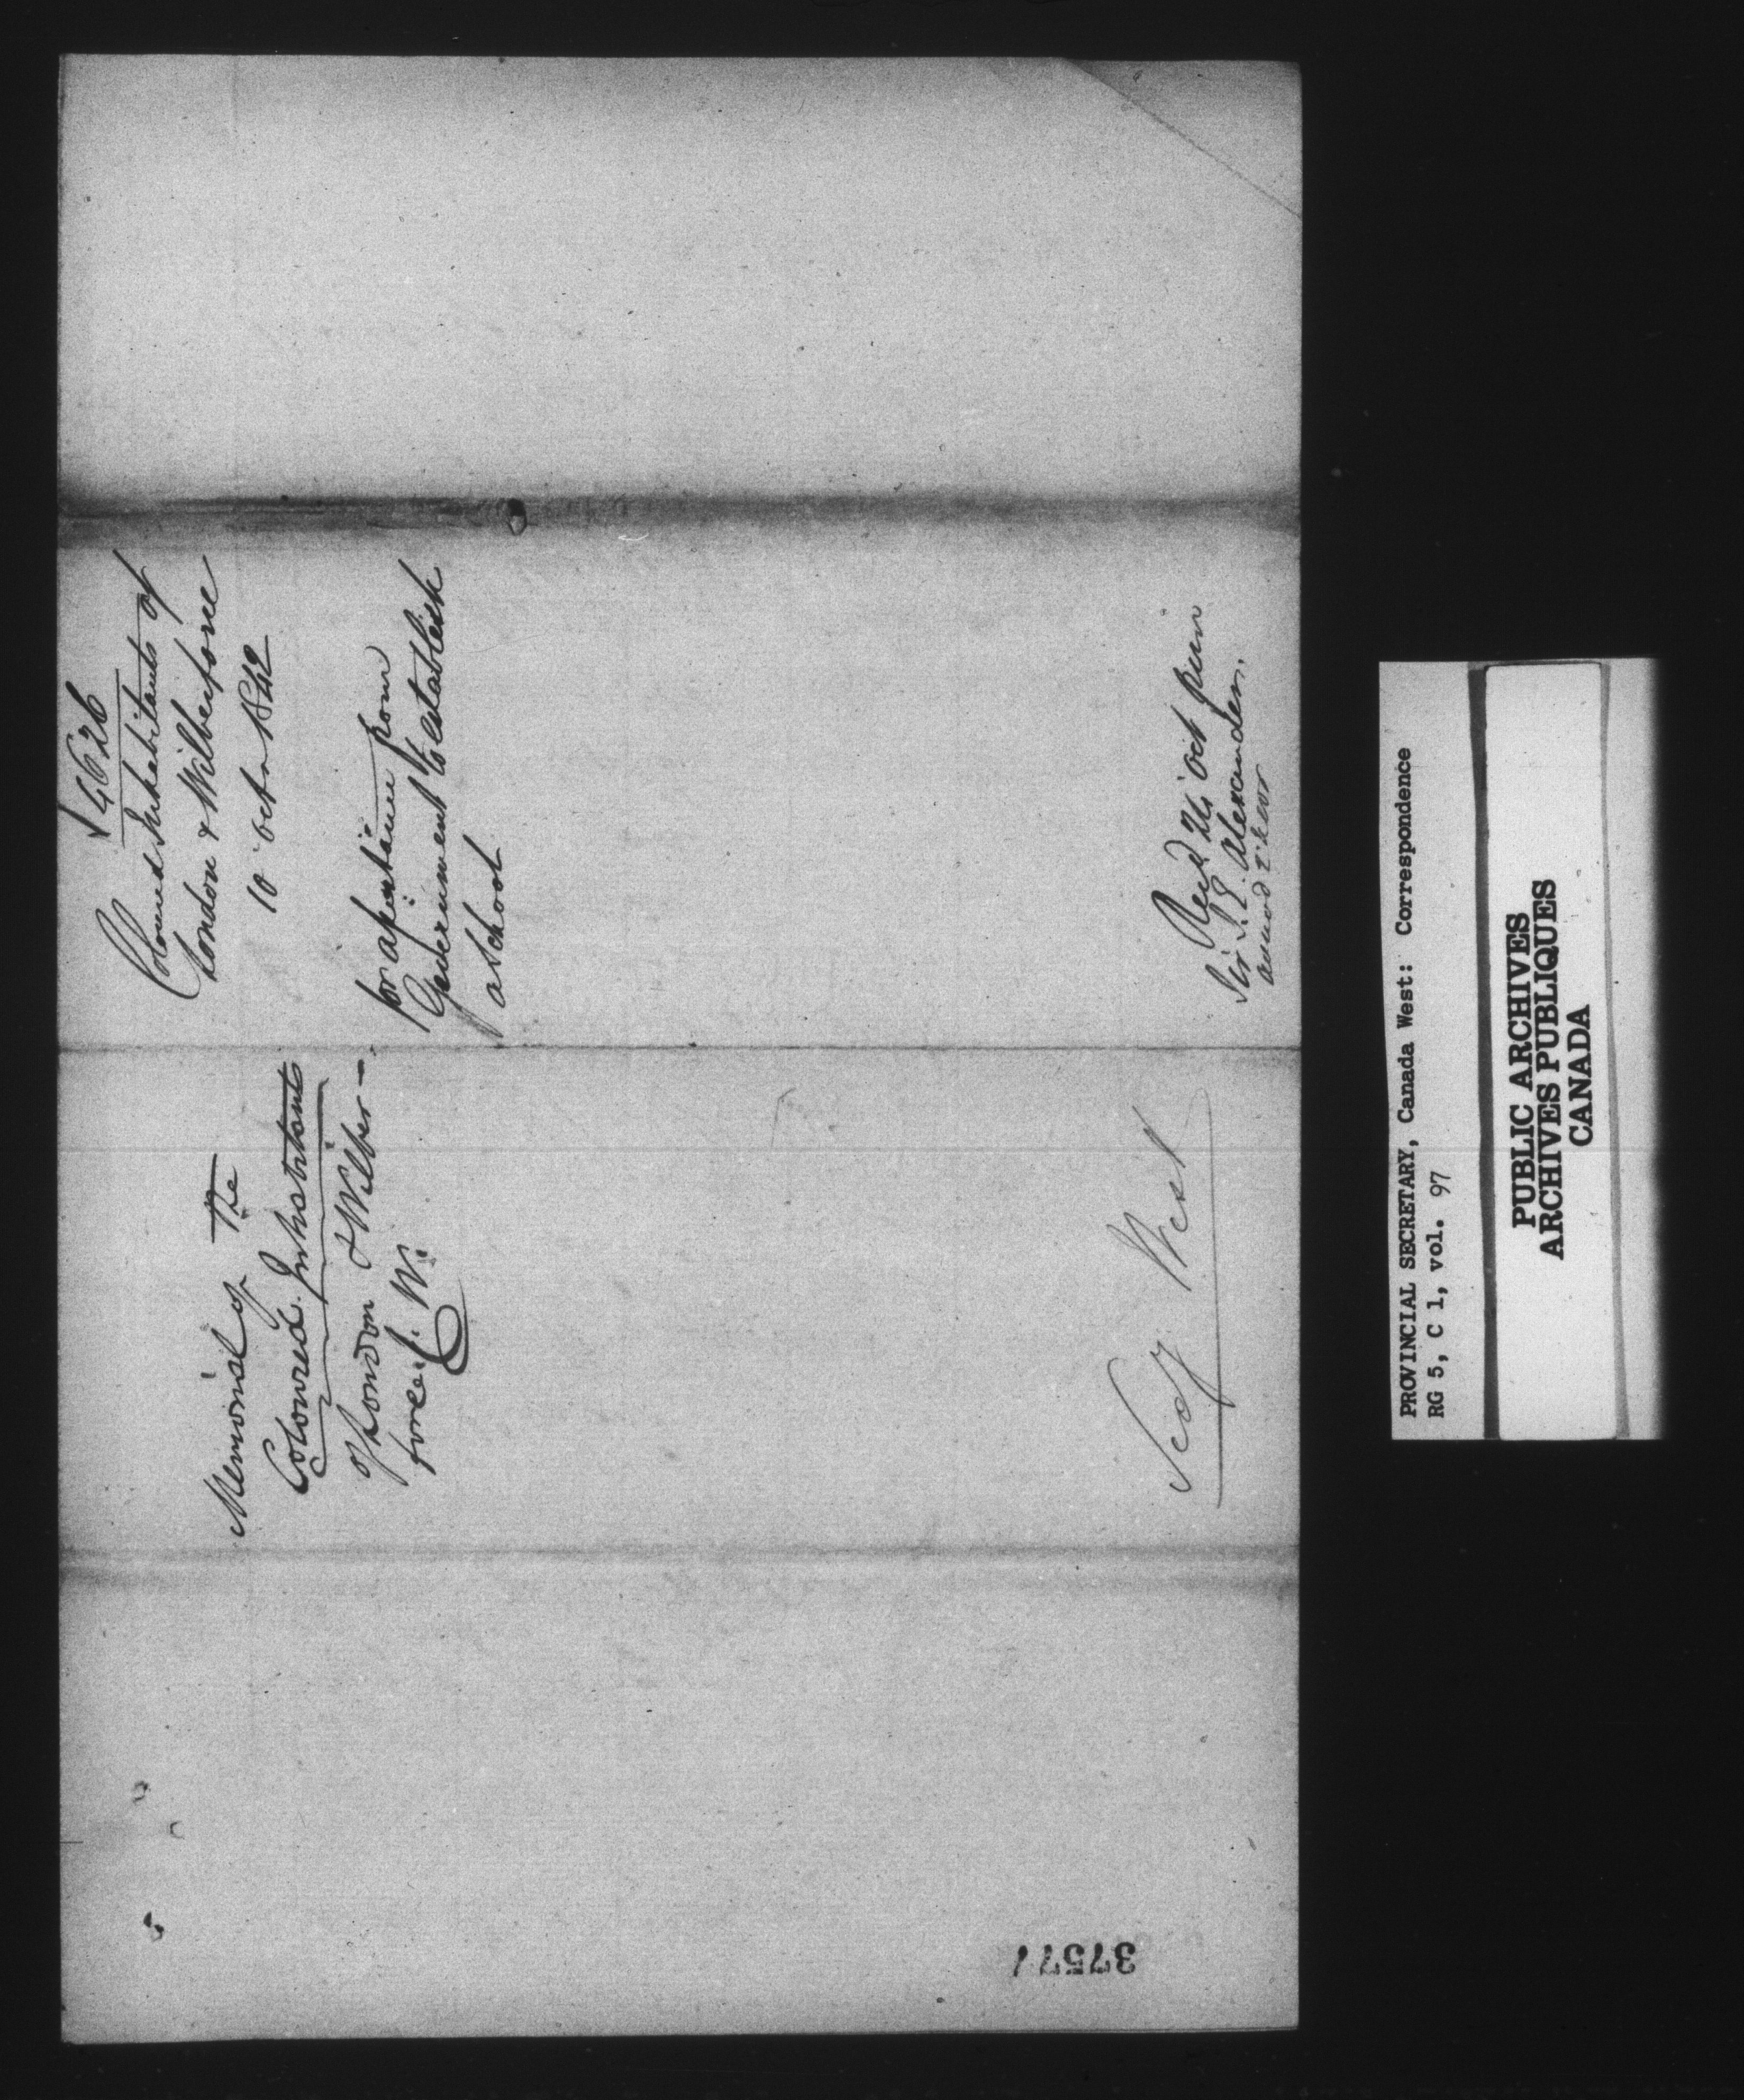 4626
Coloured Inhabitants of
London & Wilberforce
10 Octr 1842
for assistance from
Government to establish
a School
Recd 26 Oct from
Sir J. E. Alexander.
Memorial of The
Coloured Inhabitants
of London & Wilber-
force C. W.
Secy West
37577
PROVINCIAL SECRETARY, Canada West: Correspondence
RG 5, C 1, vol. 97
PUBLIC ARCHIVES
ARCHIVES PUBLIQUES
CANADA